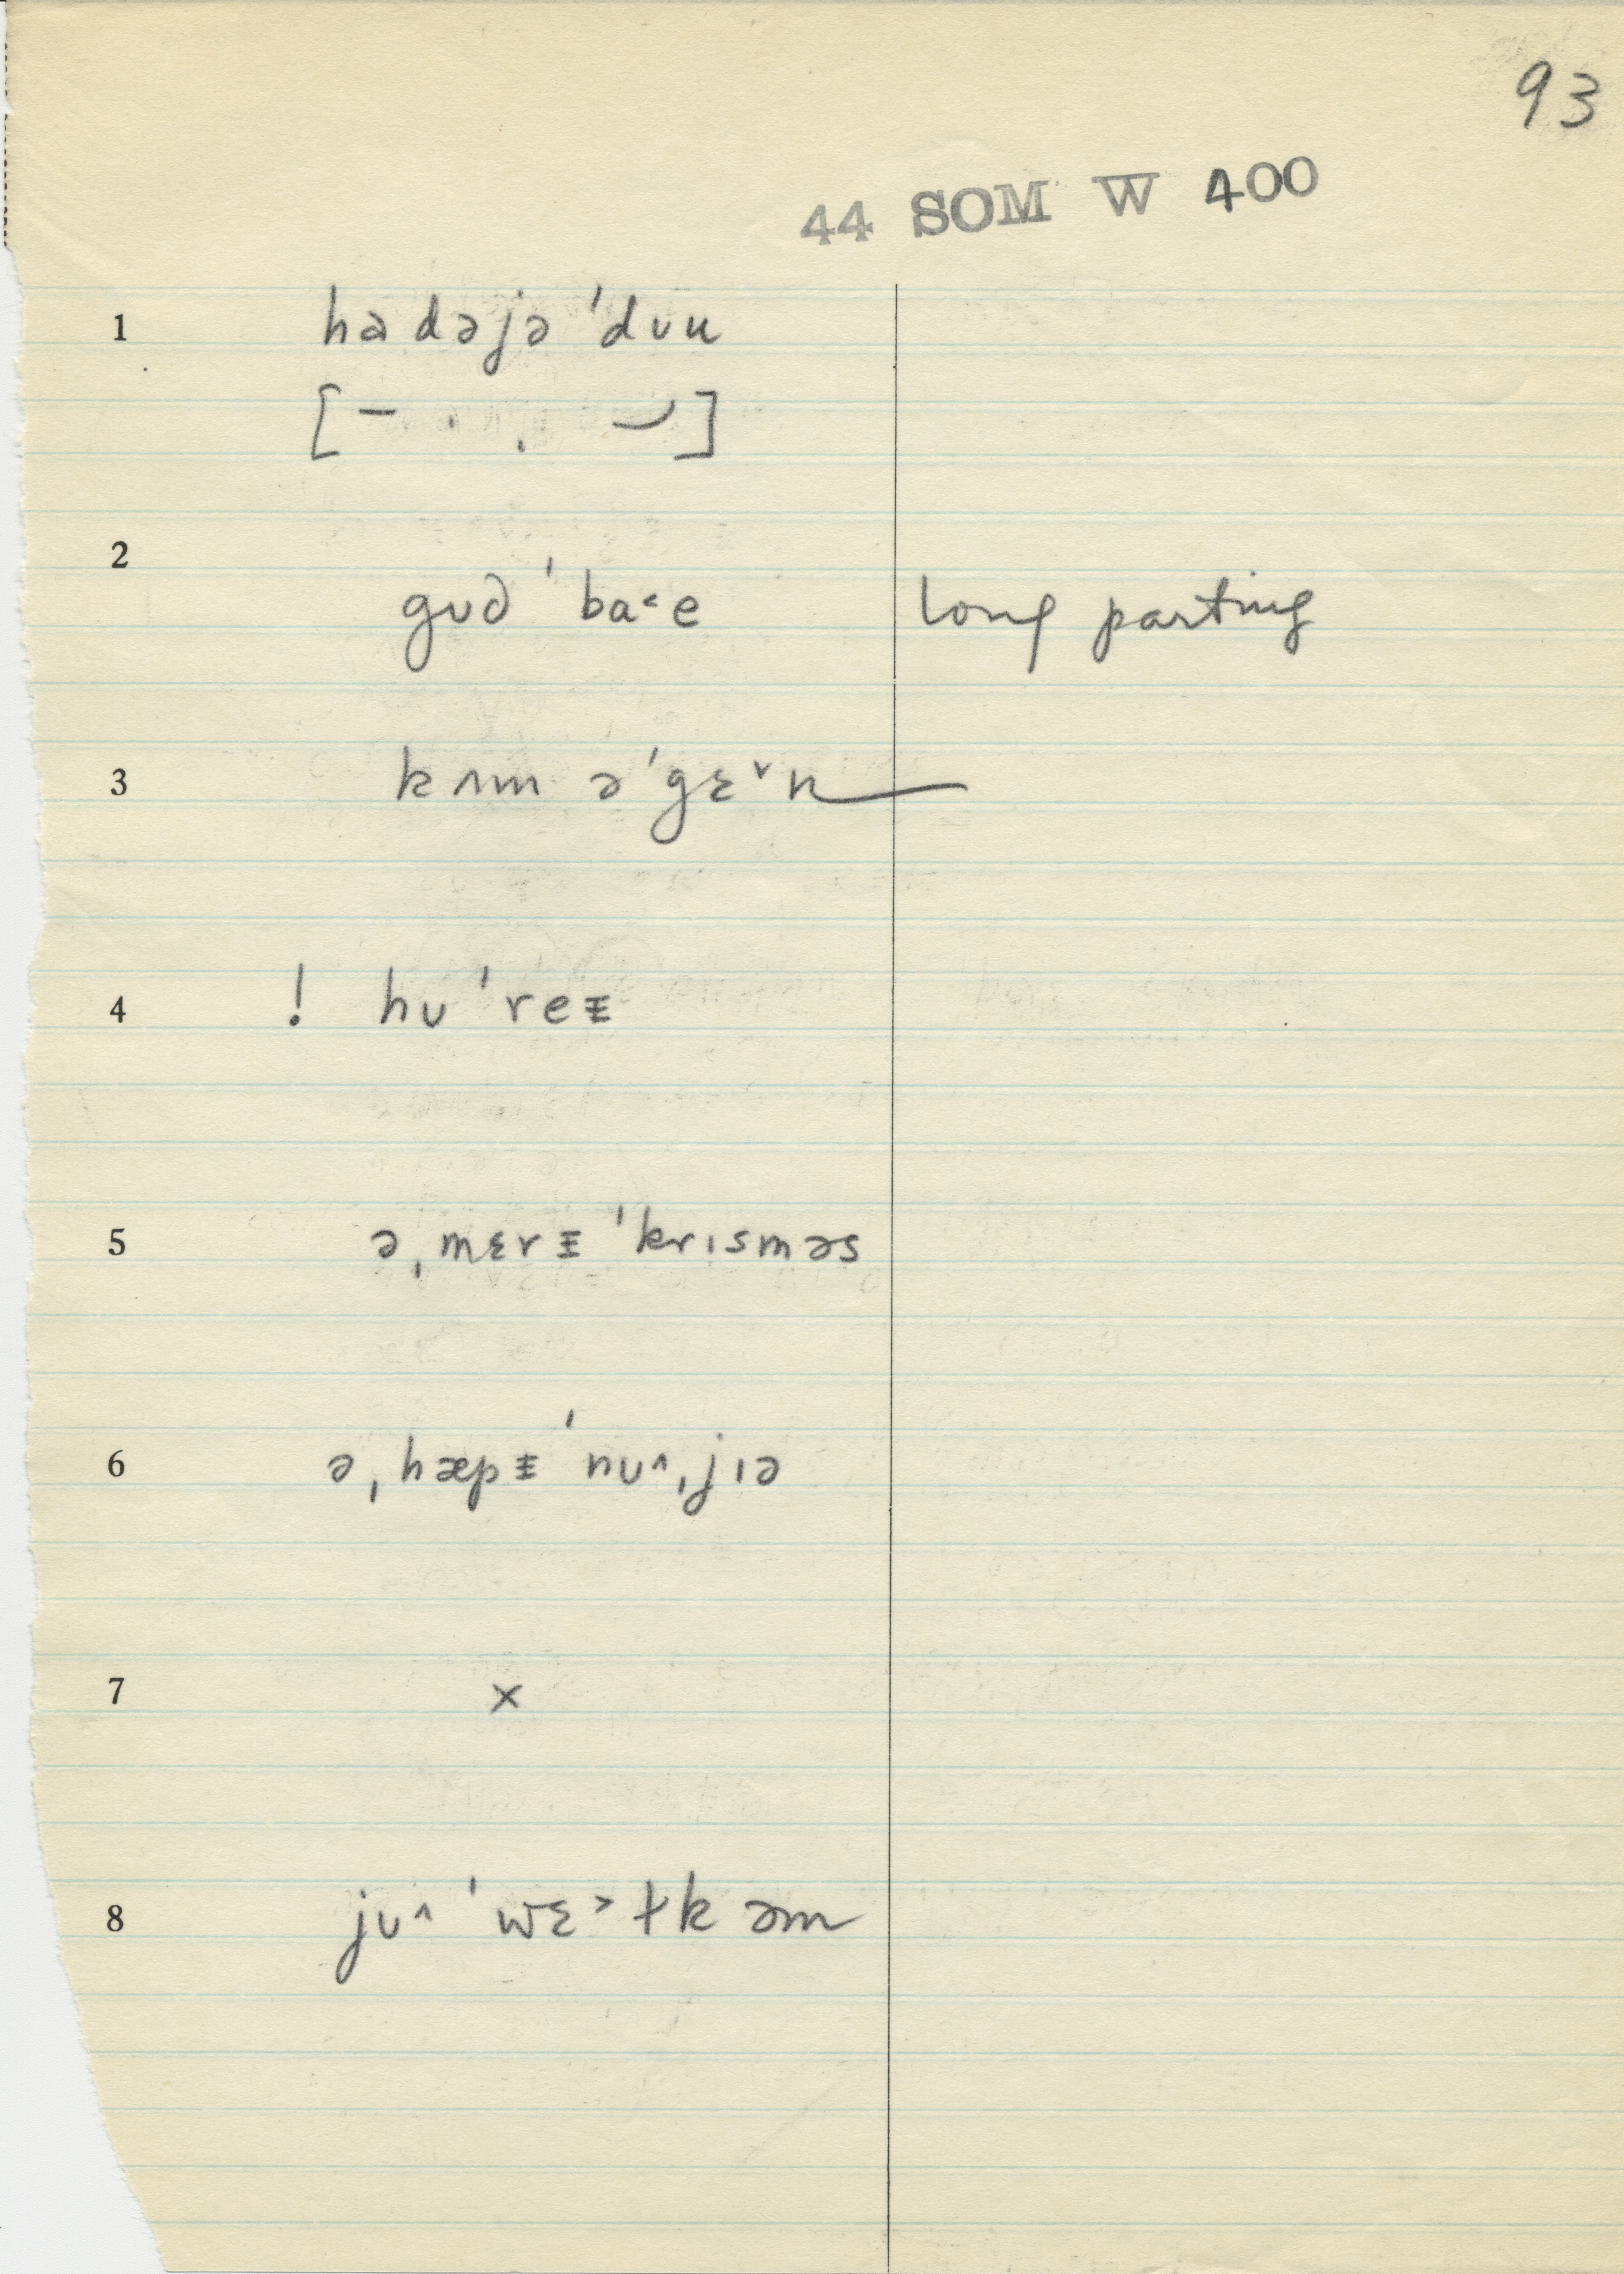 93
44 SOM W 400
1 hadəjə ˈdʊu
[– · . ⌣]
2
gʊd ˈba˂e long parting
3 kʌm əˈgɛ˅n
4 ! hʊˈreᵻ
5 ə ˌmɛrᵻ ˈkrɪsməs
6 ə ˌhæpᵻ ˈnʊ^ˌjɪə
7 ×
8 jʊ^ ˈwɛ˃ɫkəm